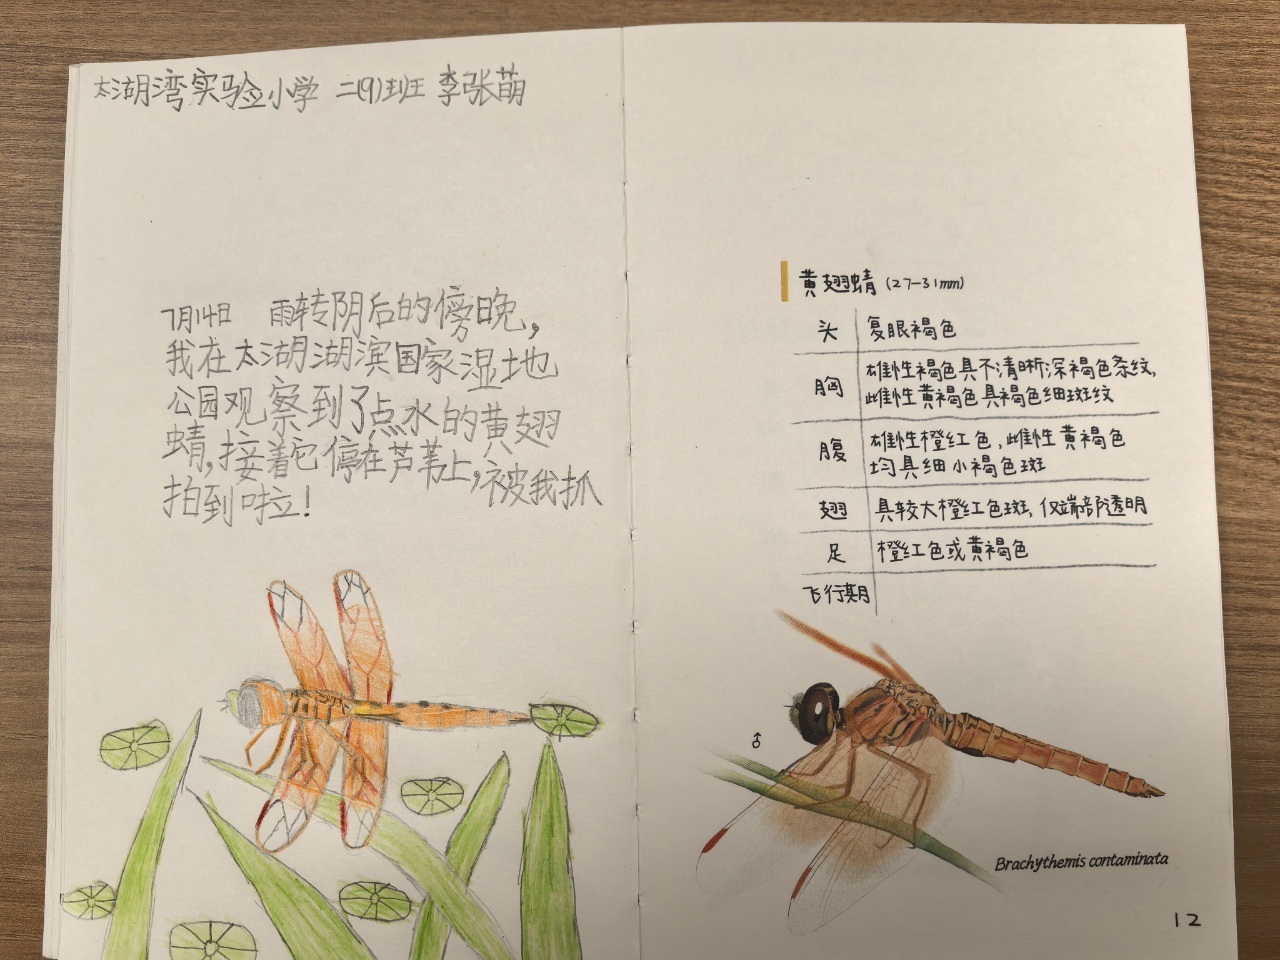 太湖湾实验小学 二(9)班 李张萌
7月14日 雨转阴后的傍晚,
我在太湖湖滨国家湿地
公园观察到了点水的黄翅
蜻,接着它停在芦苇上,被我抓
拍到啦!
黄翅蜻 (27-31mm)
头 复眼褐色
胸 雄性褐色具不清晰深褐色条纹,
雌性黄褐色具褐色细斑纹
腹 雄性橙红色,雌性黄褐色
均具细小褐色斑
翅 具较大橙红色斑,仅端部透明
足 橙红色或黄褐色
飞行期
♂
Brachythemis contaminata
12